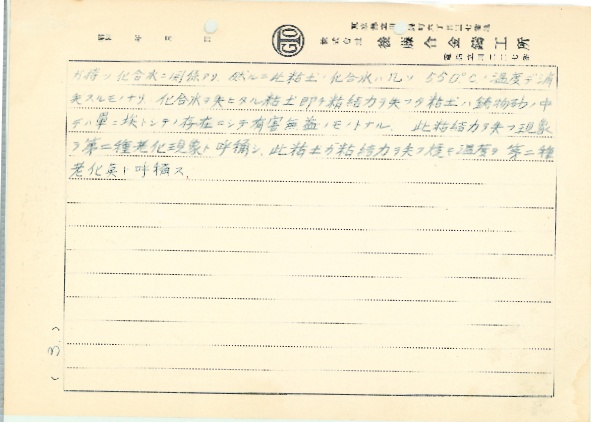 昭 年 月 日
GIO
株式会社 後藤合金鋳工所
ガ持ツ化合水ニ関係アリ。然ルニ此粘土ノ化合水ハ凡ソ 550°C ノ温度デ消
失スルモノナリ。化合水ヲ失ヒタル粘土即チ粘結力ヲ失ツタ粘土ハ鋳物砂ノ中
デハ単ニ埃トシテノ存在ニシテ有害無益ノモノトナル。 此粘結力ヲ失フ現象
ヲ第二種老化現象ト呼稱シ、此粘土ガ粘結力ヲ失フ焼ケ温度ヲ 第二種
老化点ト呼稱ス。
(3.)